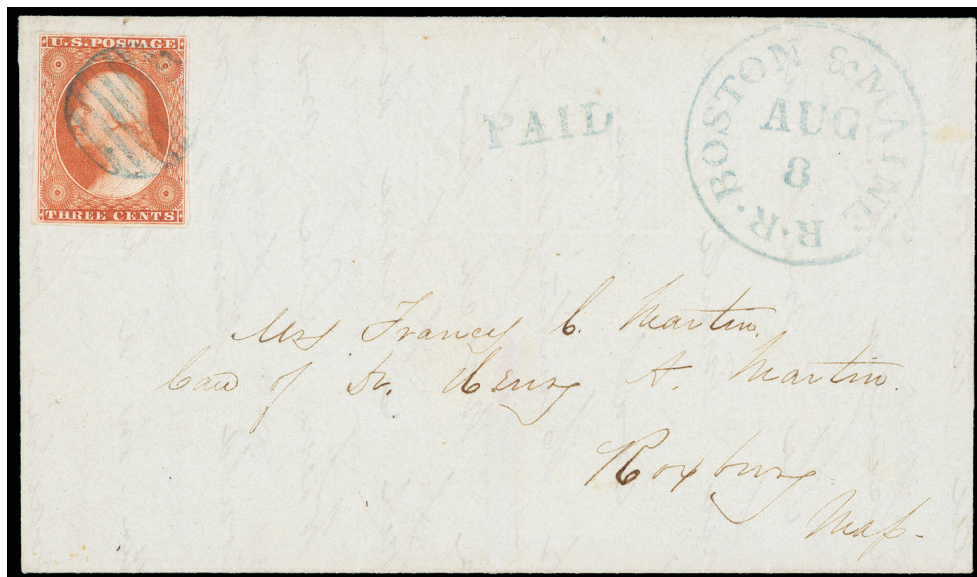 U.S. POSTAGE
THREE CENTS
PAID
BOSTON & MAINE R.R.
AUG
8
Mrs Frances C. Martin.
Care of Dr. Henry A. Martin.
Roxbury
Mass.